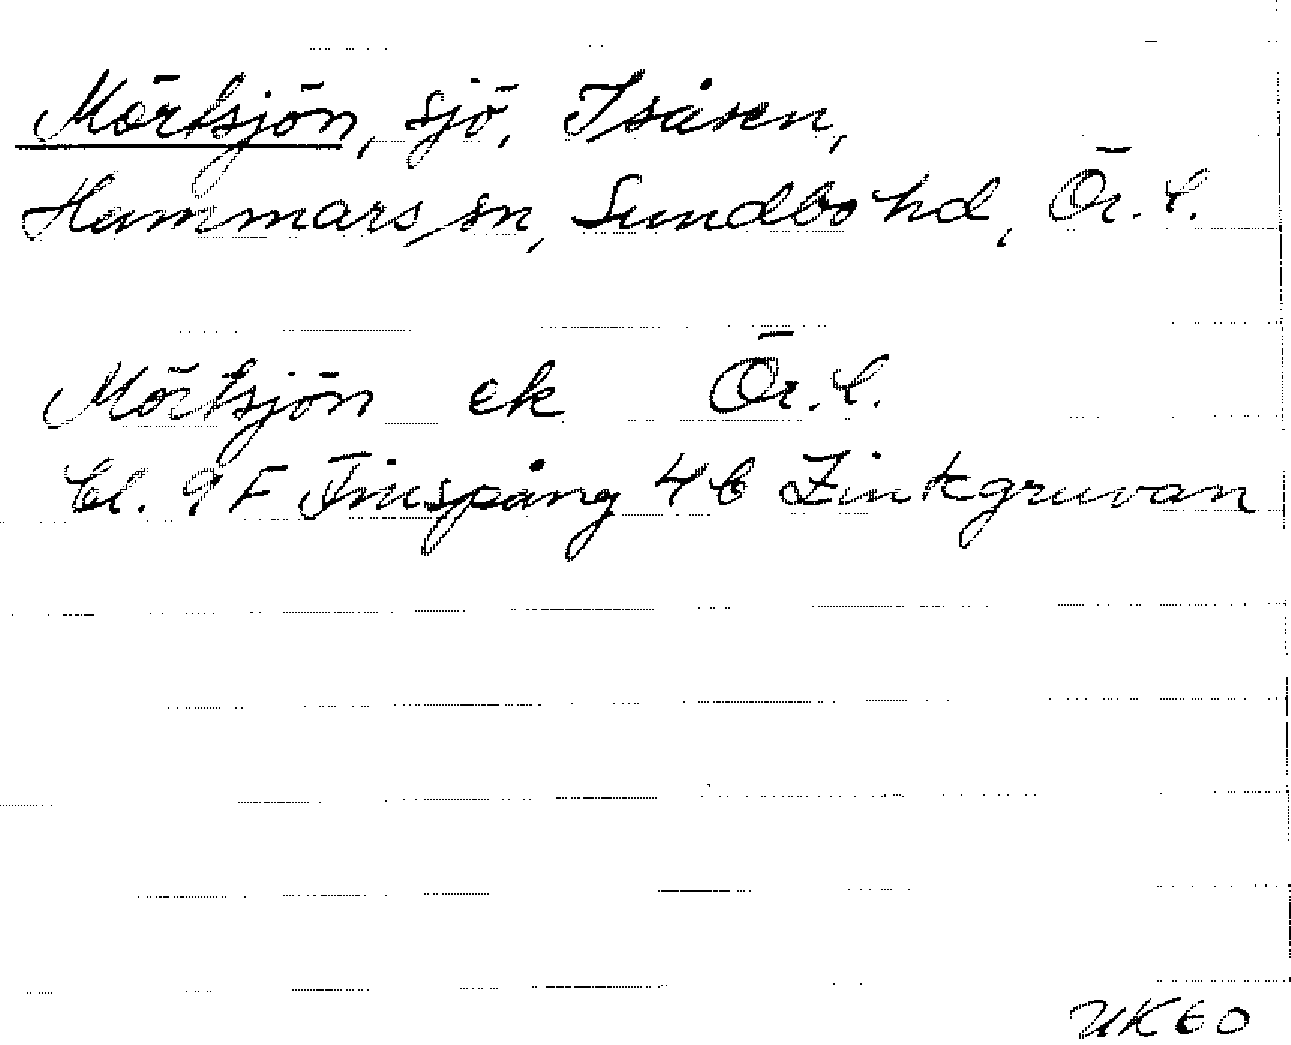 Mörtsjön, sjö, Isåsen,
Hammars sn, Sundbo hd, Ör. l.
Mörtsjön ek Ör. l.
bl. 9F Finspång 4b Zinkgruvan
UK60